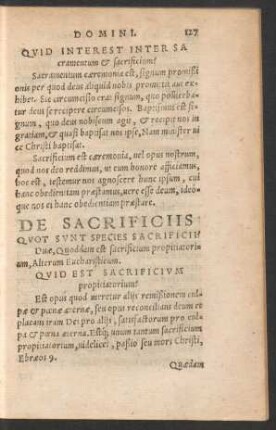 DOMINI. 127
QVID INTEREST INTER SA
cramentum & sacrificium?
Sacramentum cæremonia est, signum promissi
onis per quod deus aliquid nobis promittit aut ex
hibet. Sic circumcisio erat signum, quo pollicebatur
deus se recipere circumcisos. Baptismus est si-
gnum, quo deus nobiscum agit, & recipit nos in
gratiam, & quasi baptisat nos ipse, Nam minister vi
ce Christi baptisat.
Sacrificium est cæremonia, uel opus nostrum,
quod nos deo reddimus, ut eum honore afficiamus,
hoc est, testemur nos agnoscere hunc ipsum, cui
hanc obedientiam præstamus, uere esse deum, ideo-
que nos ei hanc obedientiam præstare.
DE SACRIFICIIS
QVOT SVNT SPECIES SACRIFICII?
Duæ, Quoddam est sacrificium propiciatori-
um, Alterum Eucharisticum.
QVID EST SACRIFICIVM
propitiatorium?
Est opus quod meretur alijs remissionem cul-
pæ & pœnæ æternæ, seu opus reconcilians deum et
placans iram Dei pro alijs, satisfactorum pro cul-
pa & pœna æterna. Estq; unum tantum sacrificium
propitiatorium, uidelicet, passio seu mors Christi,
Ebræos 9.
Quædam